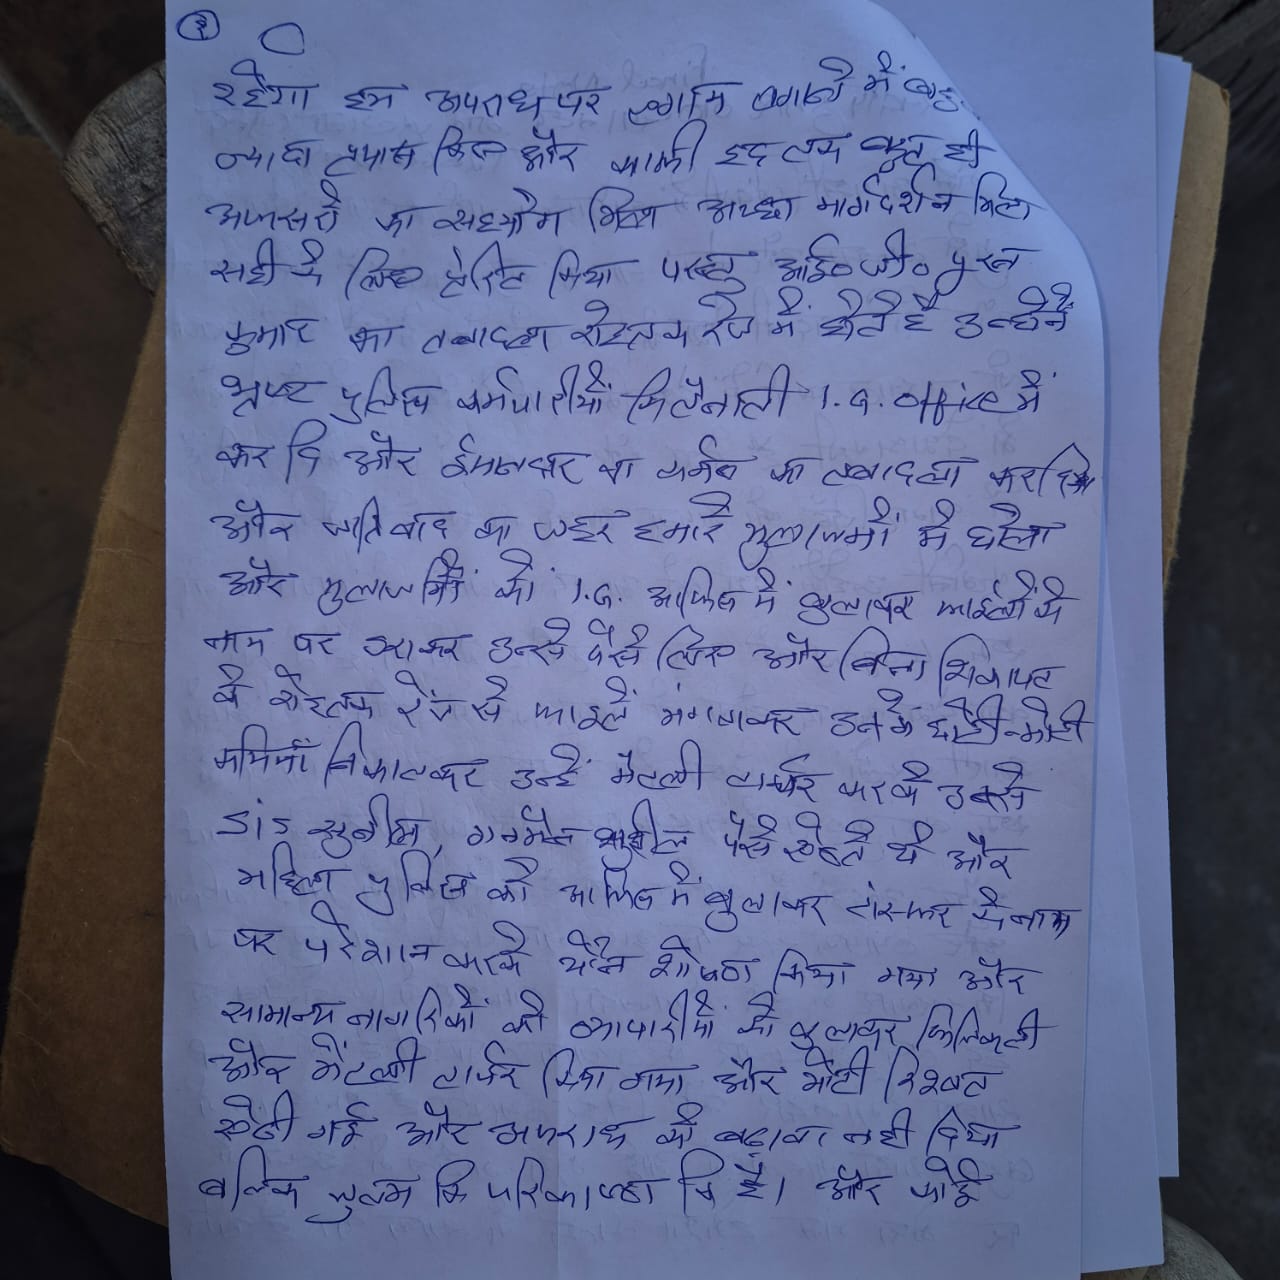 २
रहेगा हम अपराध पर लगाम लगाने में बहु
ज्यादा प्रयास किए और काफी हद तक बहुत ही
अफसरों का सहयोग मिला अच्छा मार्गदर्शन मिला
सही के लिए प्रेरित किया परन्तु आई०जी० पुरन
कुमार का तबादला रोहतक रेंज में होते है उन्होंने
भ्रष्ट पुलिस कर्मचारीयों कि तैनाती I.G. office में
कर दि और ईमानदार का तबादला कर दिया
और जातिवाद का जहर हमारे मुलाजमों में घोला
और मुलाजमों को I.G. आफिस में बुलाकर फाईलों के
नाम पर उनसे पैसे लिए और बिना शिकायत
के रोहतक रेंज से फाइलें मंगवाकर उनमें छोटी मोटी
कमियां निकालकर उन्हें मैंटली टार्चर करके उनसे
SIS सुनील, गनमैन सुशील पैसे ऐंठते थे और
महिला पुलिस को आफिस में बुलाकर ट्रांसफर के नाम
पर परेशान करके यौन शोषण किया गया और
सामान्य नागरिकों को व्यापारीयों को बुलाकर फिजिकली
और मैंटली टार्चर किया गया और मोटी रिश्वत
ऐंठी गई और अपराध को बढावा नही दिया
बल्कि जुल्म कि पराकाष्ठा कि है। और कोई